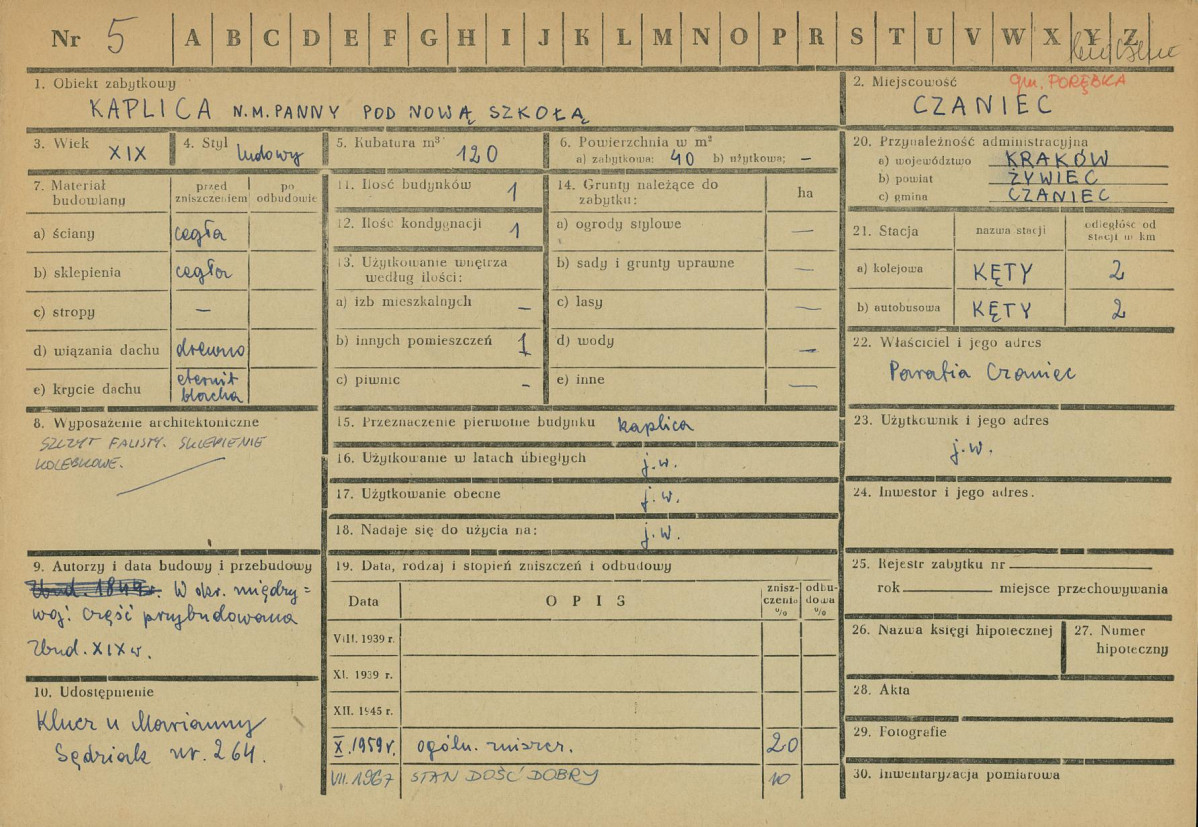 Nr 5 A B C D E F G H I J K L M N O P R S T U V W X Y Z
1. Obiekt zabytkowy
KAPLICA N.M. PANNY POD NOWĄ SZKOŁĄ
2. Miejscowość gm. PORĘBKA
CZANIEC
3. Wiek XIX
4. Styl ludowy
5. Kubatura m³ 120
6. Powierzchnia w m²
a) zabytkowa: 40 b) użytkowa; —
7. Materiał budowlany
przed zniszczeniem
po odbudowie
a) ściany cegła
b) sklepienia cegła
c) stropy —
d) wiązania dachu drewno
e) krycie dachu eternit
blacha
8. Wyposażenie architektoniczne
SZCZYT FALISTY. SKLEPIENIE
KOLEBKOWE.
9. Autorzy i data budowy i przebudowy
Zbud. 1849 r. W okr. między=
woj. część przybudowana
Zbud. XIX w.
10. Udostępnienie
Klucz u Marianny
Sędziak nr. 264.
11. Ilość budynków 1
12. Ilość kondygnacji 1
13. Użytkowanie wnętrza
według ilości:
a) izb mieszkalnych —
b) innych pomieszczeń 1
c) piwnic -
14. Grunty należące do
zabytku:
ha
a) ogrody stylowe —
b) sady i grunty uprawne —
c) lasy —
d) wody —
e) inne —
15. Przeznaczenie pierwotne budynku kaplica
16. Użytkowanie w latach ubiegłych j.w.
17. Użytkowanie obecne j.w.
18. Nadaje się do użycia na: j.w.
19. Data, rodzaj i stopień zniszczeń i odbudowy
Data
OPIS
znisz-
czenia
%
odbu-
dowa
%
VIII. 1939 r.
XI. 1939 r.
XII. 1945 r.
X. 1959 r. ogóln. zniszcz. 20
VII. 1967 STAN DOŚĆ DOBRY 10
20. Przynależność administracyjna
a) województwo KRAKÓW
b) powiat ŻYWIEC
c) gmina CZANIEC
21. Stacja
nazwa stacji
odległość od
stacji w km
a) kolejowa KĘTY 2
b) autobusowa KĘTY 2
22. Właściciel i jego adres
Parafia Czaniec
23. Użytkownik i jego adres
j.w.
24. Inwestor i jego adres.
25. Rejestr zabytku nr
rok miejsce przechowywania
26. Nazwa księgi hipotecznej
27. Numer
hipoteczny
28. Akta
29. Fotografie
30. Inwentaryzacja pomiarowa